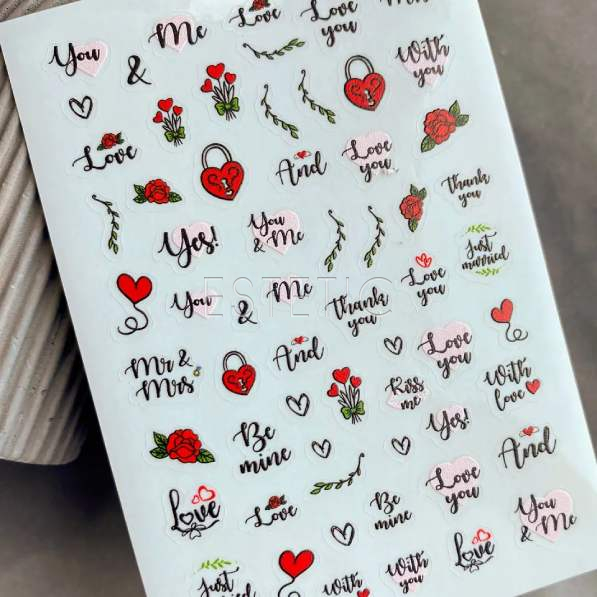 Love
Love
you
You
&
Me
With
you
Love
And
Love
you
Thank
you
Yes!
You
& Me
Just
married
You
&
Me
Thank
you
Love
you
ESTETIC
Mr &
Mrs
And
Love
you
Kiss
me
With
love
Be
mine
Yes!
And
Love
Love
Be
mine
Love
you
You
& Me
Just
married
With
With
you
Love